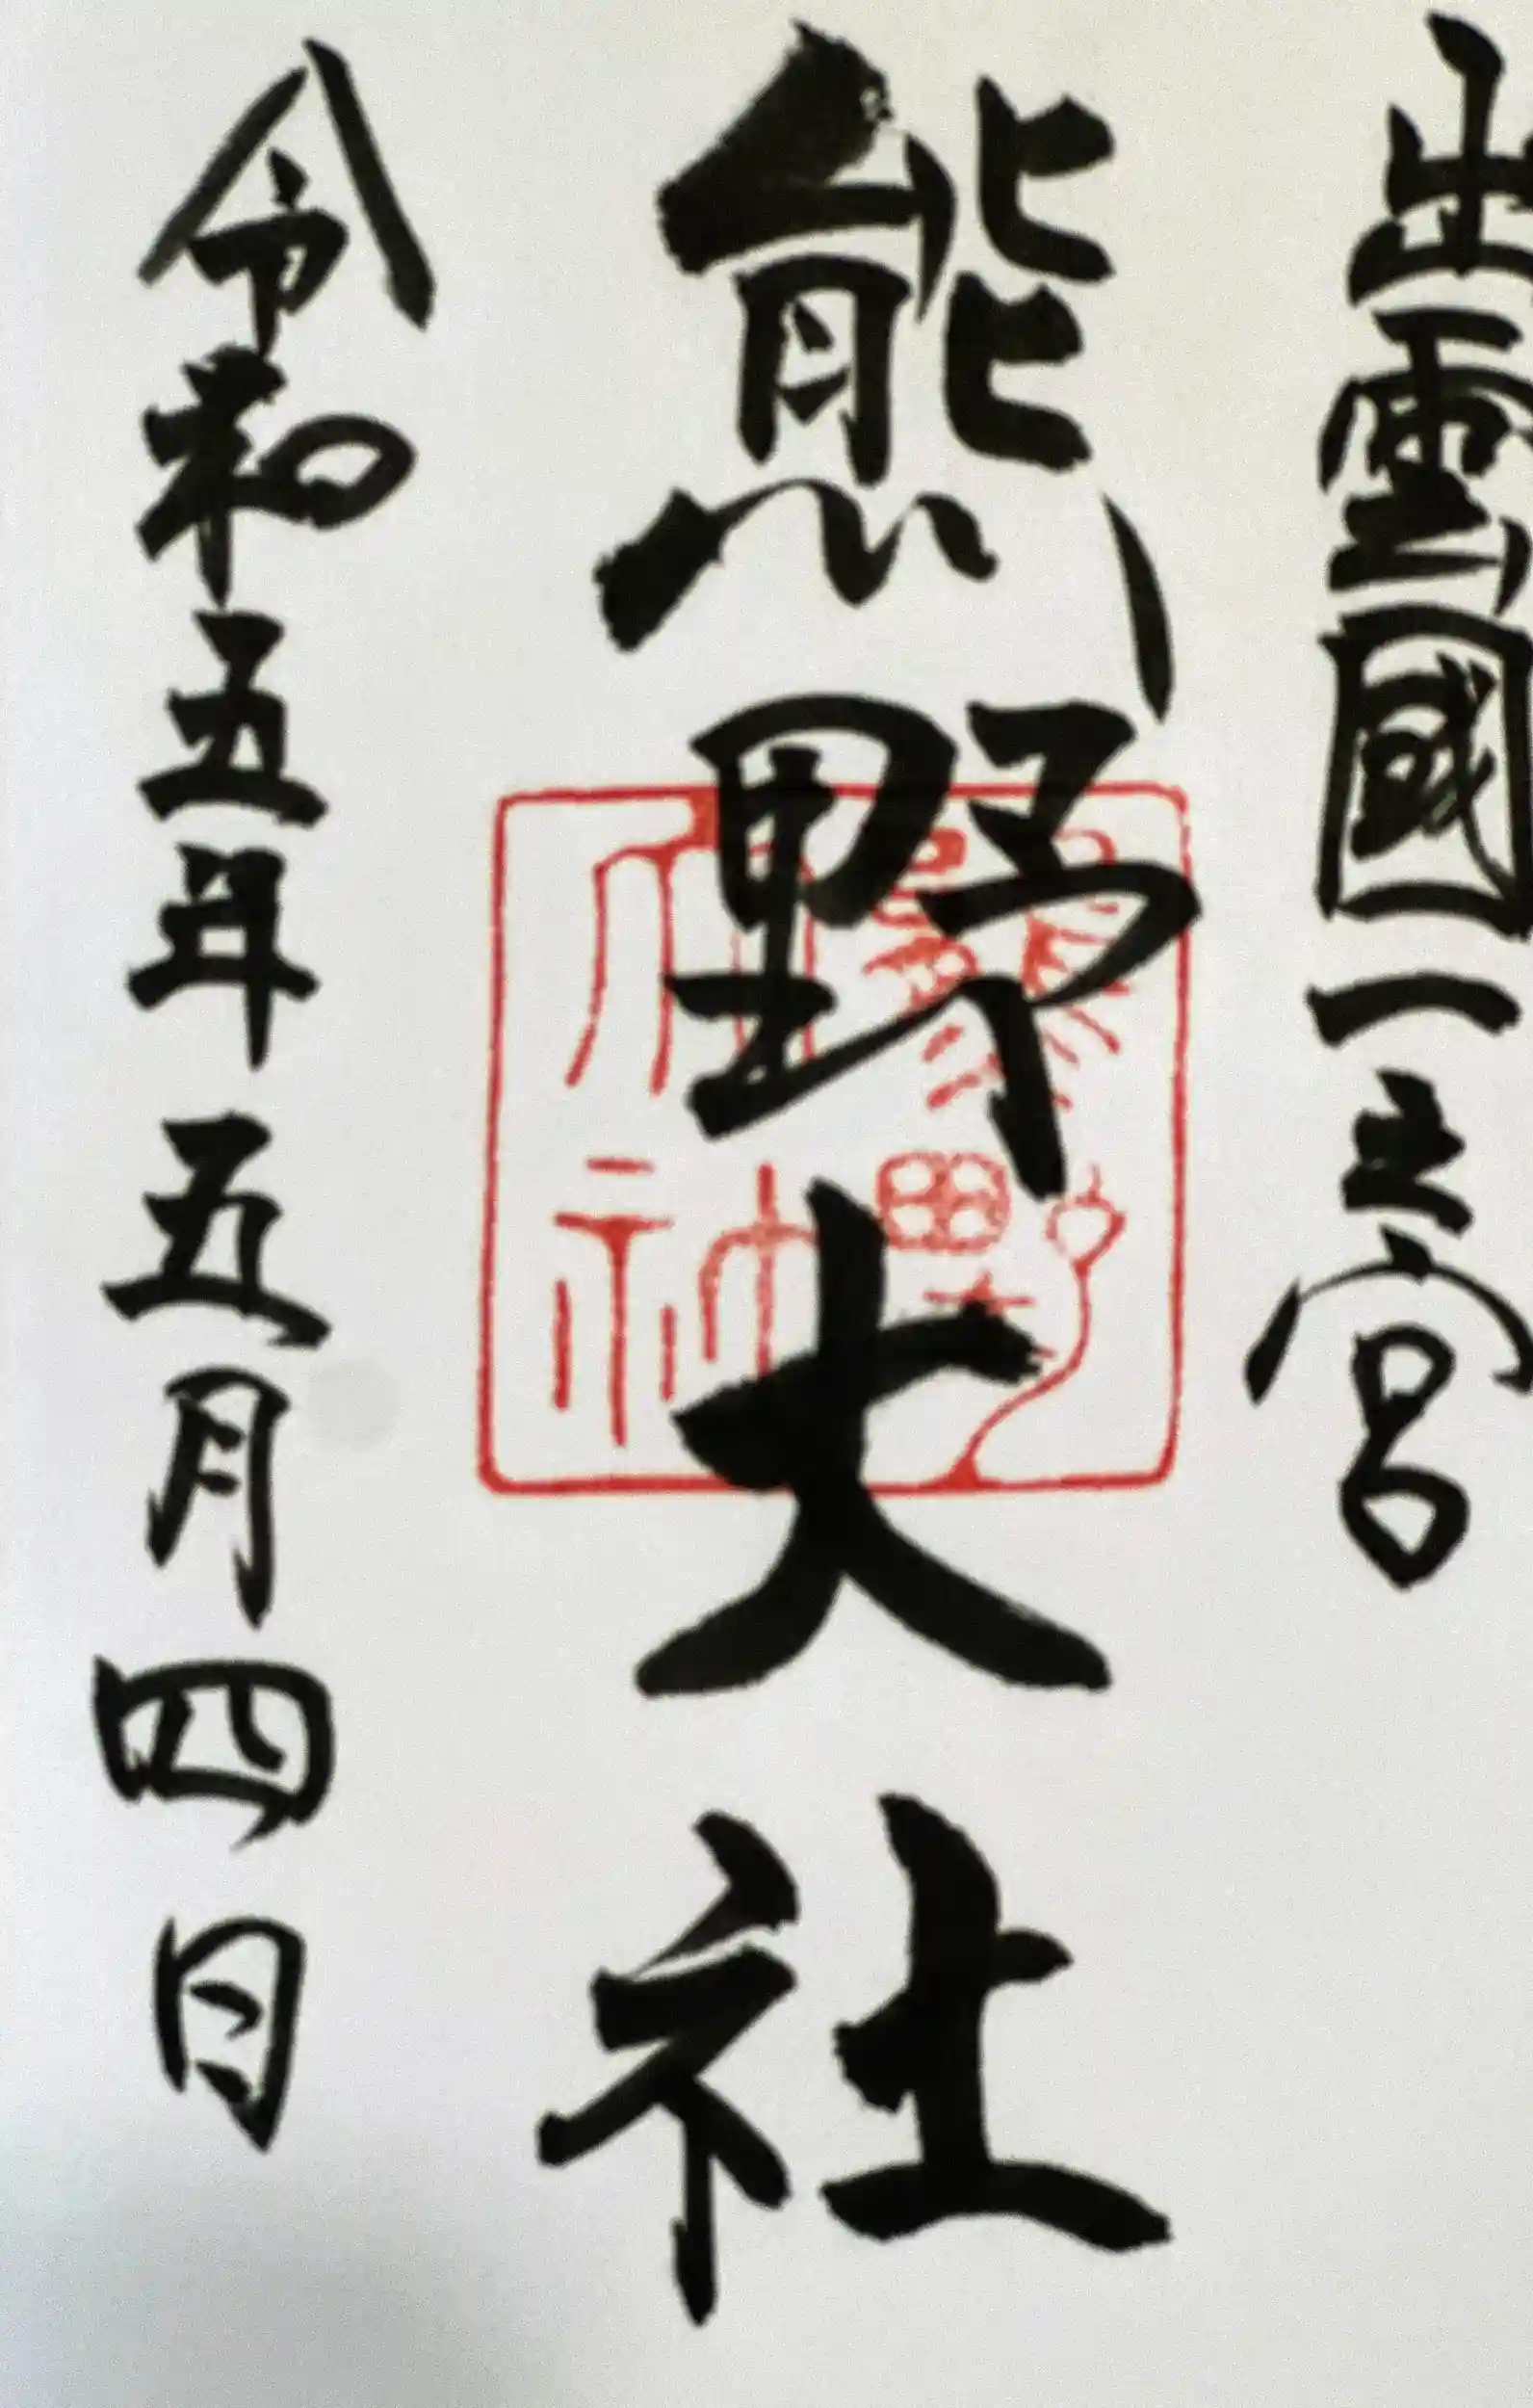 出雲國一之宮
熊野大社
令和五年五月四日